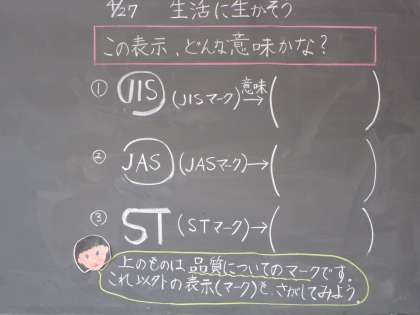 4/27 生活に生かそう
この表示、どんな意味かな?
① JIS (JISマーク) 意味→( )
② JAS (JASマーク)→( )
③ ST (STマーク)→( )
上のものは品質についてのマークです。
これ以外の表示(マーク)を、さがしてみよう。